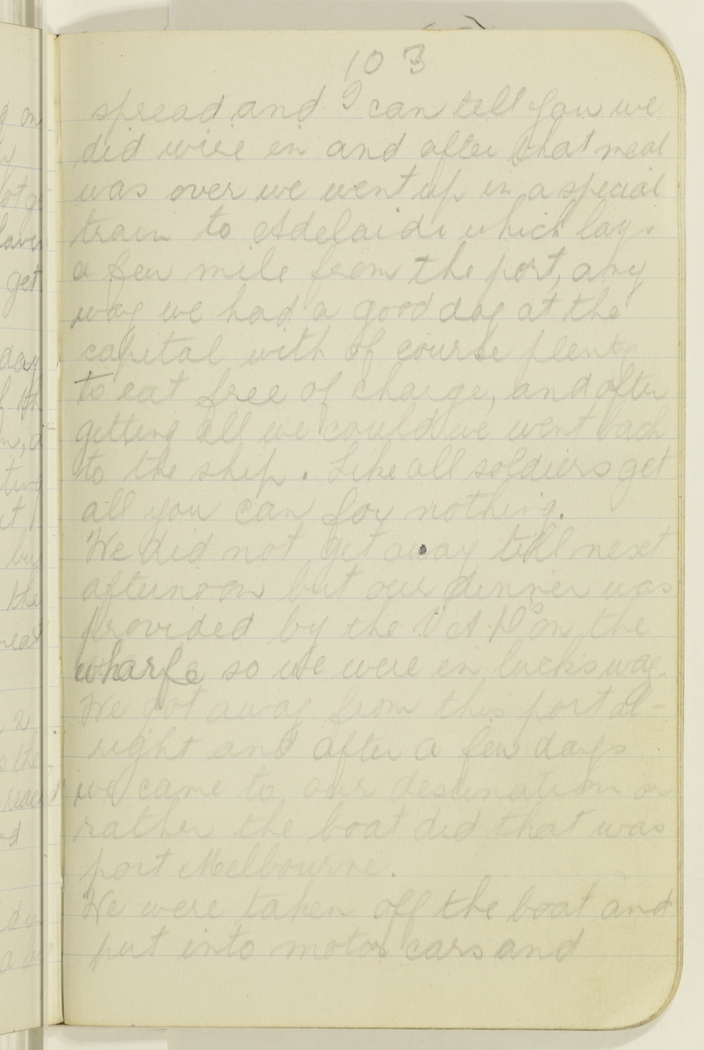 103
spread and I can tell you we
did wire in and after that meal
was over we went up in a special
train to Adelaide which lays
a few mile from the port, any
way we had a good day at the
capital with of course plenty
to eat free of charge, and after
getting all we could we went back
to the ship. Like all soldiers get
all you can for nothing.
We did not get away till next
afternoon but our dinner was
provided by the V A D's on the
wharfe so we were in lucks way.
We got away from this port al-
right and after a few days
we came to our destination or
rather the boat did that was
port Melbourne.
We were taken off the boat and
put into motor cars and